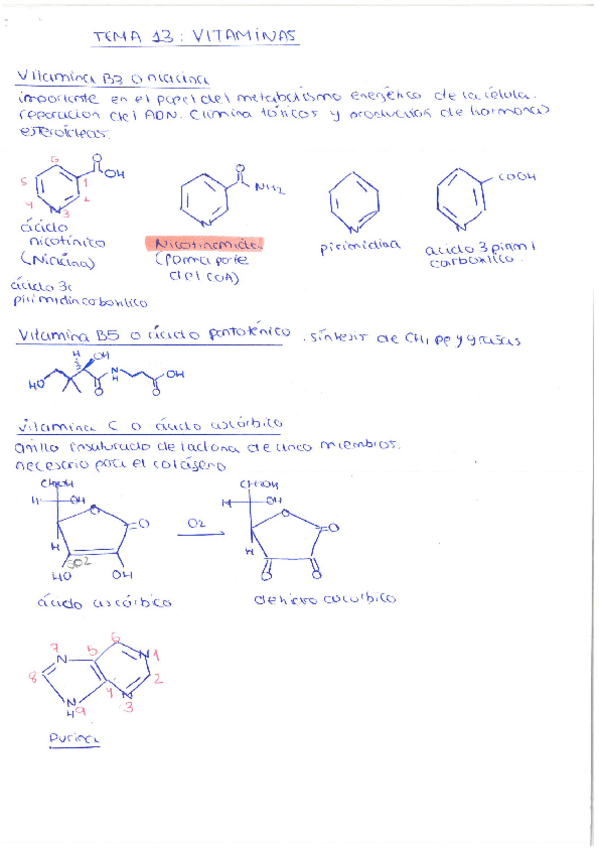 TEMA 13: VITAMINAS
Vitamina B3 o niacina
importante en el papel del metabolismo energético de la célula.
reparación del ADN. Elimina tóxicos y producción de hormonas
esteroideas.
6 O OH
5 1
4 2
N 3
O NH2
N
N
COOH
N
ácido
nicotínico
(Niacina)
ácido 3c
pirimidincarboxílico
Nicotinamida
(forma parte
del COA)
pirimidina
ácido 3 pirim
carboxílico.
Vitamina B5 o ácido pantoténico . síntesis de CH, pp y grasas
H OH
HO O N H O OH
Vitamina C o ácido ascórbico
anillo insaturado de lactona de cinco miembros.
necesario para el colágeno
CH2OH
H OH
O
O
H
HO OH
O2
CH2OH
H OH
O
O
H
O O
ácido ascórbico
dehidro ascórbico
7 N 5 6 N 1
8 2
4 N 3
N H 9
Purina